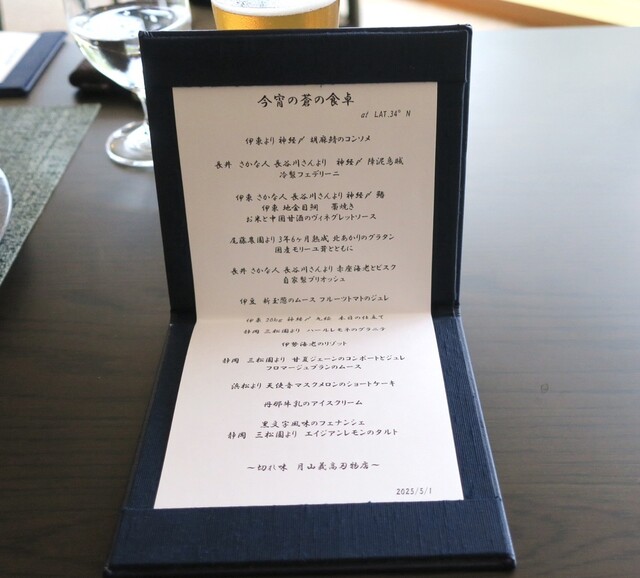 今宵の蒼の食卓
at LAT.34° N
伊東より 神経〆 胡麻鯖のコンソメ
長井 さかな人 長谷川さんより 神経〆 障泥烏賊
冷製フェデリーニ
伊東 さかな人 長谷川さんより 神経〆
伊東 地金目鯛 藁焼き
お米と中国甘酒のヴィネグレットソース
尾藤農園より 3年6ヶ月熟成 北あかりのグラタン
国産モリーユ茸とともに
長井 さかな人 長谷川さんより 赤座海老とビスク
自家製ブリオッシュ
伊豆 新玉葱のムース フルーツトマトのジュレ
伊東 20kg 神経〆 本日の仕立て
静岡 三松園より パールレモネのグラニテ
伊勢海老のリゾット
静岡 三松園より 甘夏ジェーンのコンポートとジュレ
フロマージュブランのムース
浜松より 天使音マスクメロンのショートケーキ
丹那牛乳のアイスクリーム
黒文字風味のフェナンシェ
静岡 三松園より エイジアンレモンのタルト
～切れ味 月山義高刃物店～
2025/5/1